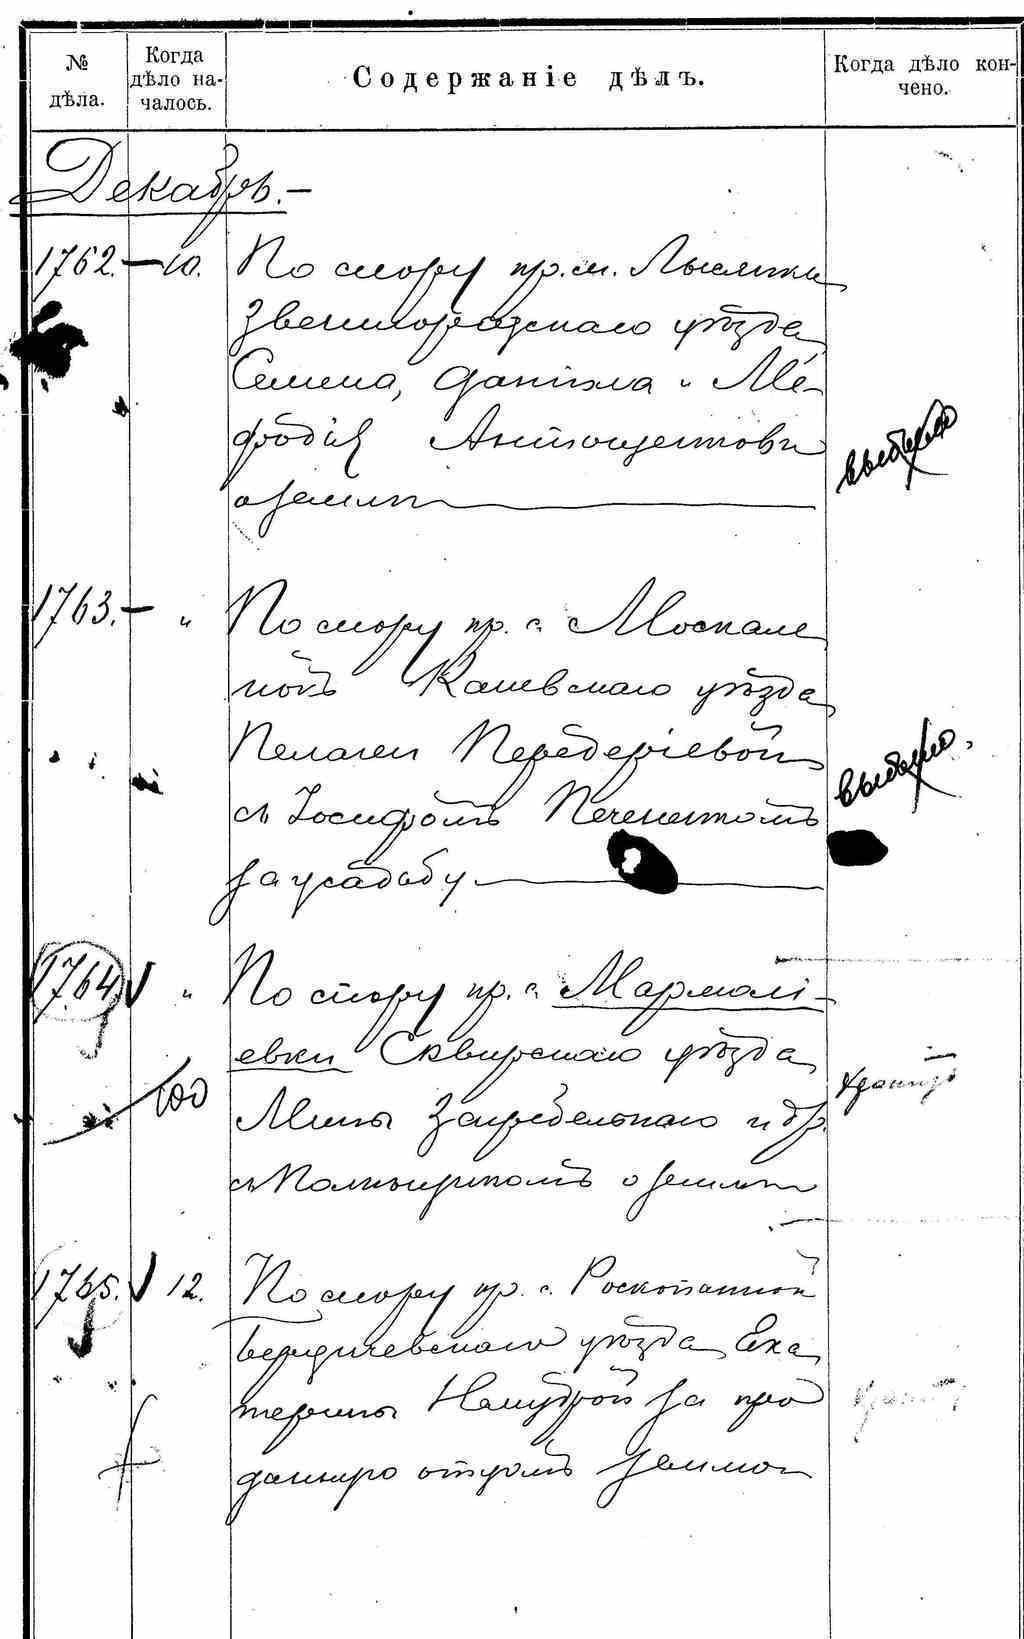 № дѣла.
Когда дѣло на-
чалось.
Содержаніе дѣлъ.
Когда дѣло кон-
чено.
Декабрь.-
1762. — 10. По спору пр. м. Лысянки
Звенигородскаго уѣзда
Семена, Даніила и Ме-
фодія
о землѣ
выбыло
1763. — " По спору пр. с. Москале
нокъ Каневскаго уѣзда
Пелагеи Передеріевой
съ Іосифомъ
за усадьбу
выбыло.
1764. " По спору пр. с. Мармолі-
евки Сквирскаго уѣзда
100
Мины и др.
съ о землѣ
1765. 12. По спору пр. с. Роскопанной
Бердичевскаго уѣзда Ека
терины за про
данную отцомъ землю